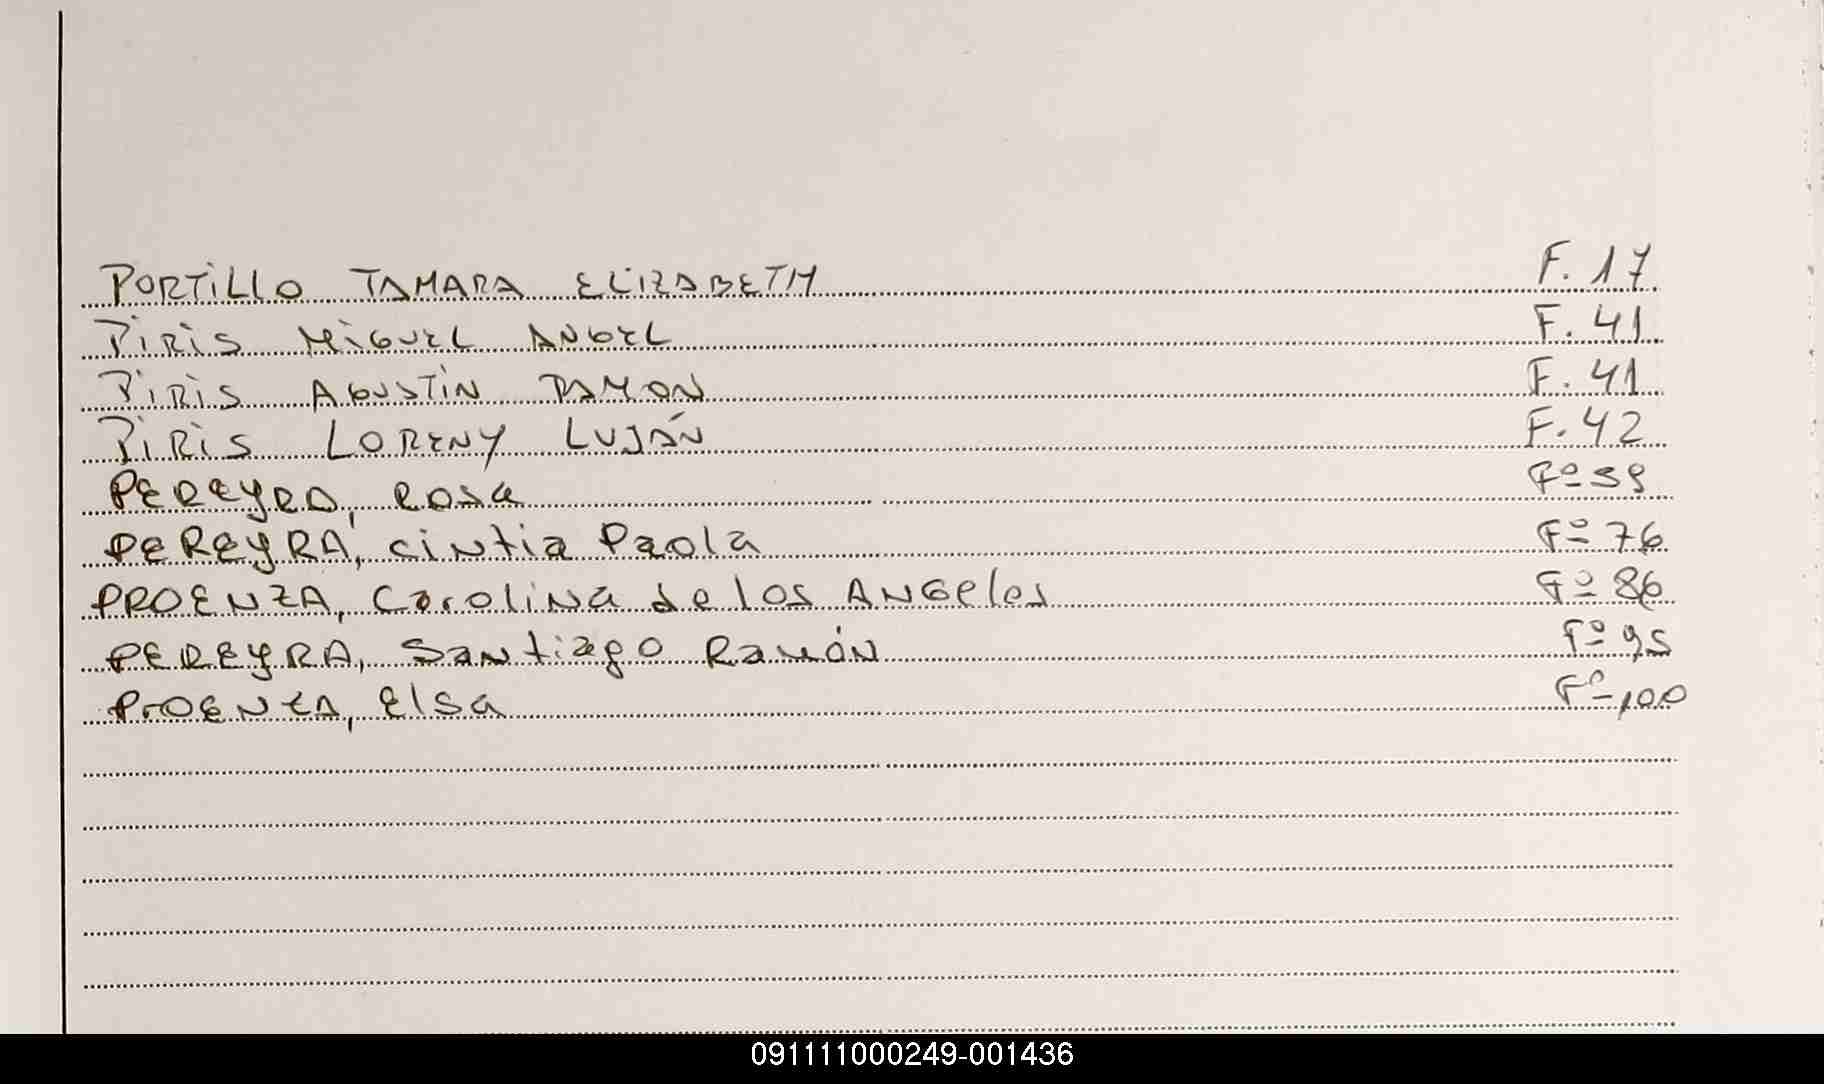 PORTILLO TAMARA ELIZABETH F. 17
PIRIS MIGUEL ANGEL F. 41
PIRIS AGUSTIN RAMON F. 41
PIRIS LORENY LUJÁN F. 42
PEREYRA, ROSA Fº 59
PEREYRA, Cintia Paola Fº 76
PROENZA, Carolina de los ANGeles Fº 86
PEREYRA, Santiago Ramón Fº 95
ProENZA, Elsa Fº 100
091111000249-001436